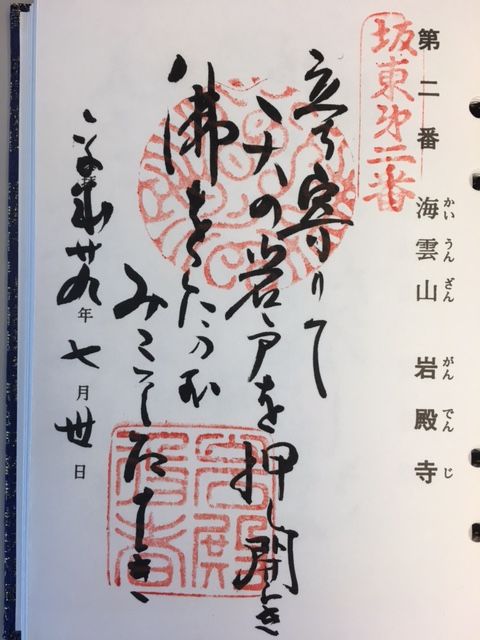 坂東第二番
第二番 海雲山 岩殿寺
かいうんざん がんでんじ
立ち寄りて
天の岩戸を押し開き
佛をたのむ
みこそたのしき
平成廿九年七月丗日